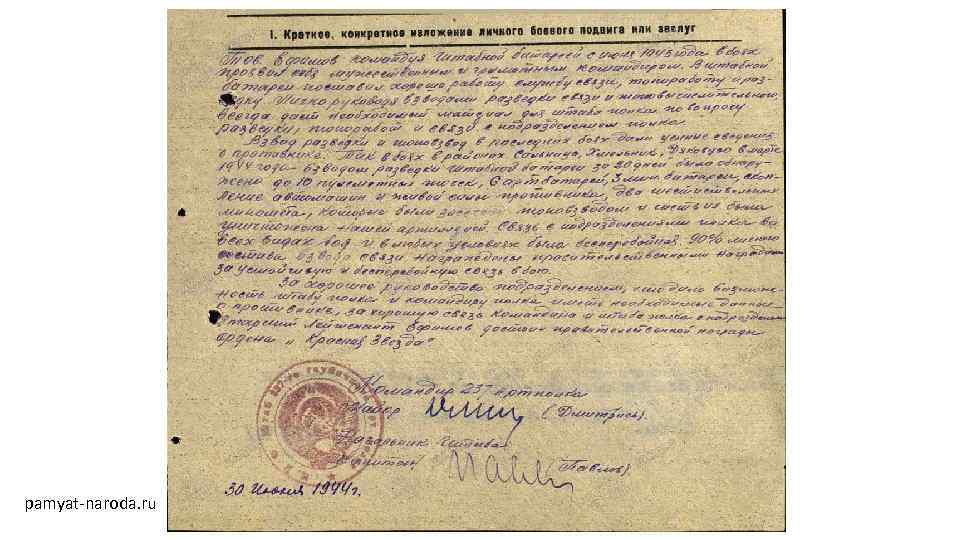 I. Краткое, конкретное изложение личного боевого подвига или заслуг
Тов. Ефимов командуя Штабной батареей с июля 1943 года в боях
проявил себя мужественным и грамотным командиром. В штабной
батарее поставил хорошо работу службу связи, топоработу и раз-
ведку. Лично руководя взводами разведки связи и топовычислительного
всегда дает необходимый материал для штаба полка по вопросу
разведки, топоработ и связи с подразделением полка.
Взвод разведки и топовзвод в последних боях дали ценные сведения
о противнике. Так в боях в районах Сальница, Хмельник, в марте
1944 года взводом разведки штабной батареи за 20 дней было обнару-
жено до 10 пулеметных точек, 6 артбатарей, 3 мин. батареи, скоп-
ление автомашин и живой силы противника, два шестиствольных
миномета, которые были засечены топовзводом и часть из были
уничтожена нашей артиллерией. Связь с подразделениями полка во
всех видах боя и в любых условиях была бесперебойная. 90% личного
состава взвода связи награждены правительственными наградами
за устойчивую и бесперебойную связь в бою.
За хорошее руководство подразделением, что дало возмож-
ность штабу полка и командиру полка иметь необходимые данные
о противнике, за хорошую связь командира и штаба полка с подразделен.
Старший лейтенант Ефимов достоин правительственной награды
ордена „Красная Звезда"
Командир 237 артполка
Майор (Дмитриев).
Начальник штаба
Капитан (Павлов)
30 Июня 1944 г.
pamyat-naroda.ru